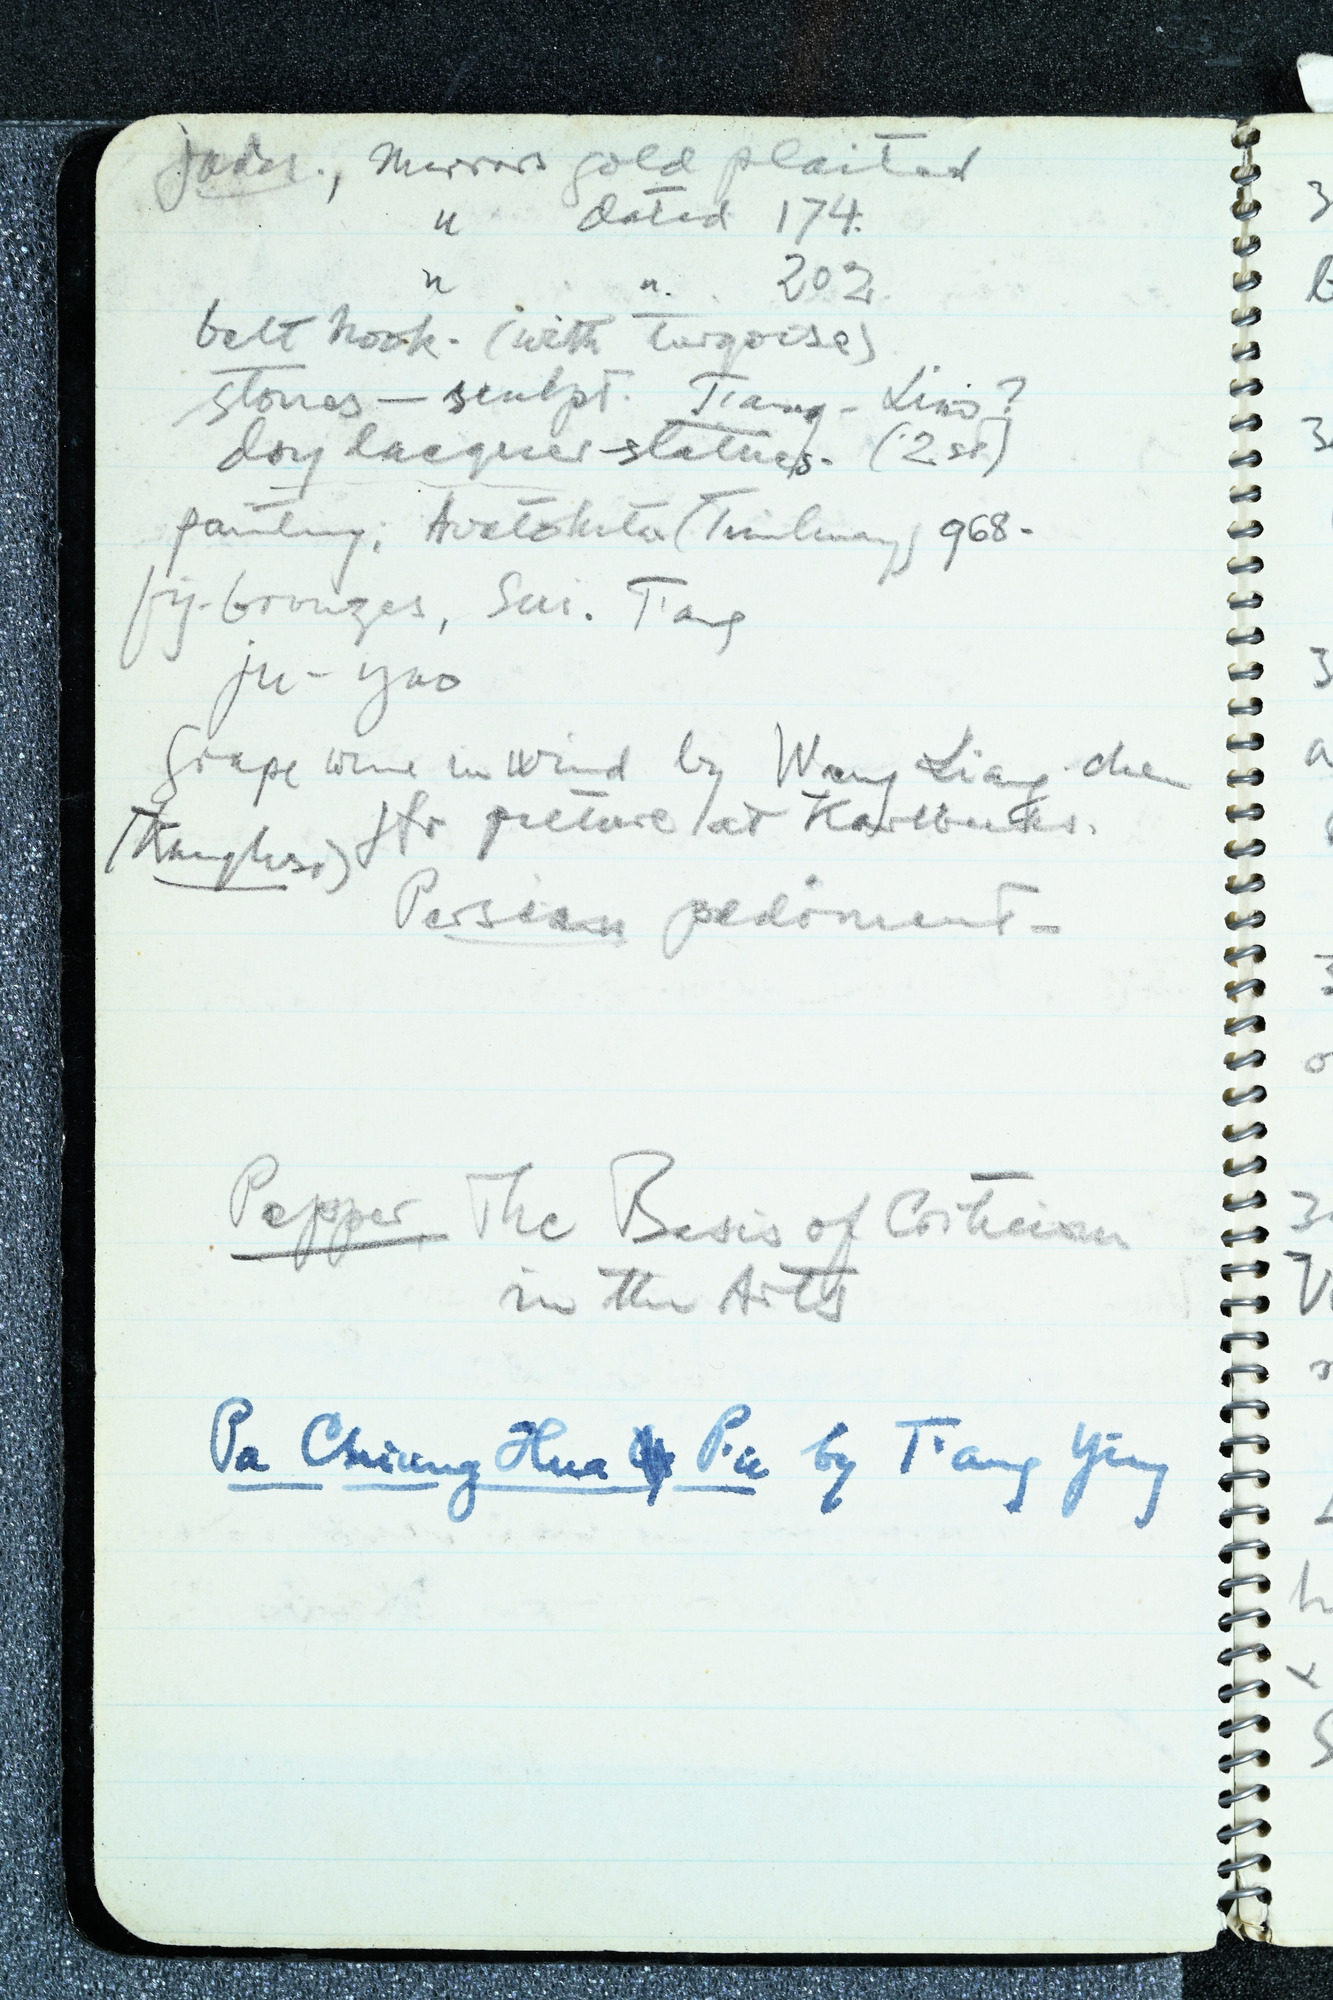 jades., Mirrors gold plaited
" dated 174.
" ". 202.
belt hook. (with turqoise)
stones — sculpt. T'ang - Liao?
dry lacquer statues. (2 st)
painting; (Tunhuang) 968-
fig. bronzes, Sui. T'ang
ju-yao
Grape wine in wind by Wang Liang-chen
(Kanghsi) for picture at
Persian pediment-
Pepper The Basis of Criticism
in the Arts
Pa Chiung Hua Pu by T'ang Ying
3
3
3
a
3
o
3
h
x
S